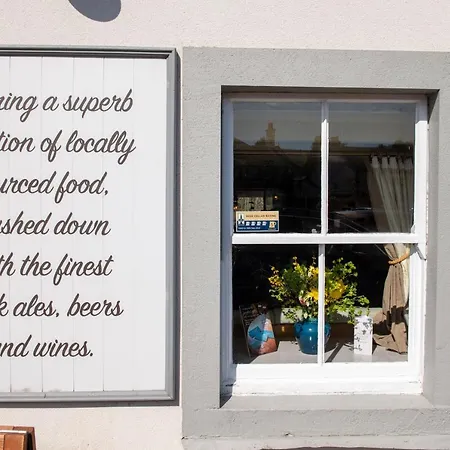 ning a superb
tion of locally
urced food,
shed down
th the finest
k ales, beers
nd wines.